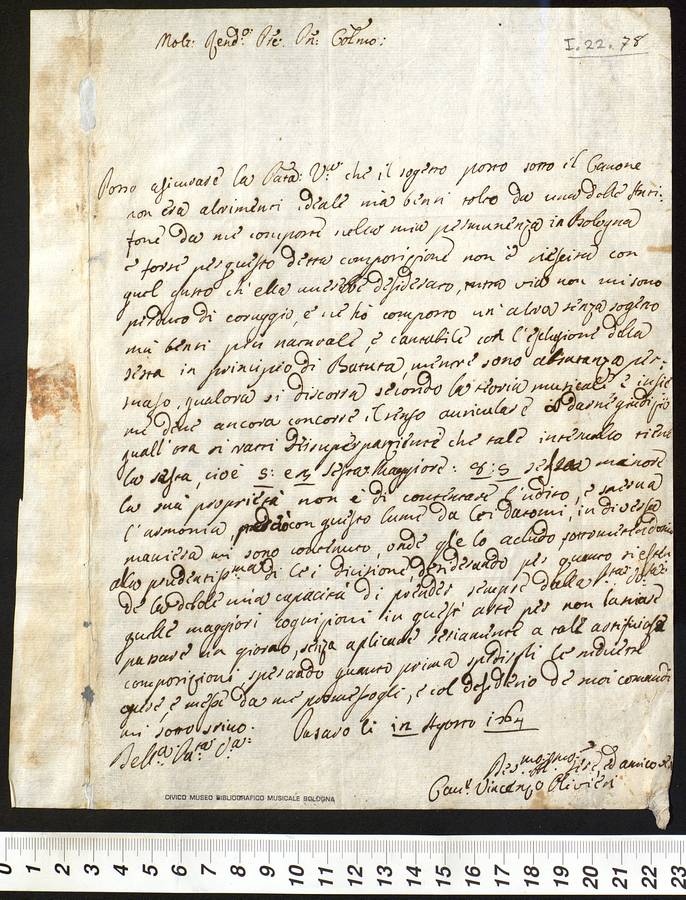 Molt: Rend.º Pre. Pn. Colmo:
I.22.78
Posso asicurare la Patà: V.ra che il sogetto posto sotto il Canone
non era altrimenti ideale mà bensi tolto da una delle Anti:
fone da me composte nella mia permanenza in Bologna
e forse per questo detta composizione non è riescita con
quel gusto ch'ella averebbe desiderato, tutta via non mi sono
perduto di coraggio, e ne hò composto un'altra senza sogetto
mà bensi più naturale, e cantabile con l'esclusione della
sesta in principio di Batuta, mentre sono abastanza per:
suaso, qualora si discorra secondo la teoria musicale e insie
me deve ancora concorre il senso auriculare à darne giudizio
quall'ora si tratti che tale intervallo tiene
la sesta, cioè 5: e 3 sesta Maggiore: 8: 5 sesta minore
la sua proprietà non è di contentare l'udito, e
l'armonia, perciò con questo lume da Lei datomi, in diversa
maniera mi sono contenuto, onde gle lo acludo
alla prudentiss.ma di Lei decisione, desiderando per quanto si esten
de la debole mia capacità di prender sempre dalla
quelle maggiori cognizioni in quest'arte per non lasciare
passare un giorno, senza aplicare seriamente a tale
composizioni, sperando quanto prima spedirgli le
messe da me promessegli, e col desiderio de suoi comandi
mi sottoscrivo. Pesaro li 12 Agosto 1764
Della P.tà V.ra
Dev.mo ed amico
Cau.r Vincenzo Olivieri
CIVICO MUSEO BIBLIOGRAFICO MUSICALE BOLOGNA
0 1 2 3 4 5 6 7 8 9 10 11 12 13 14 15 16 17 18 19 20 21 22 23